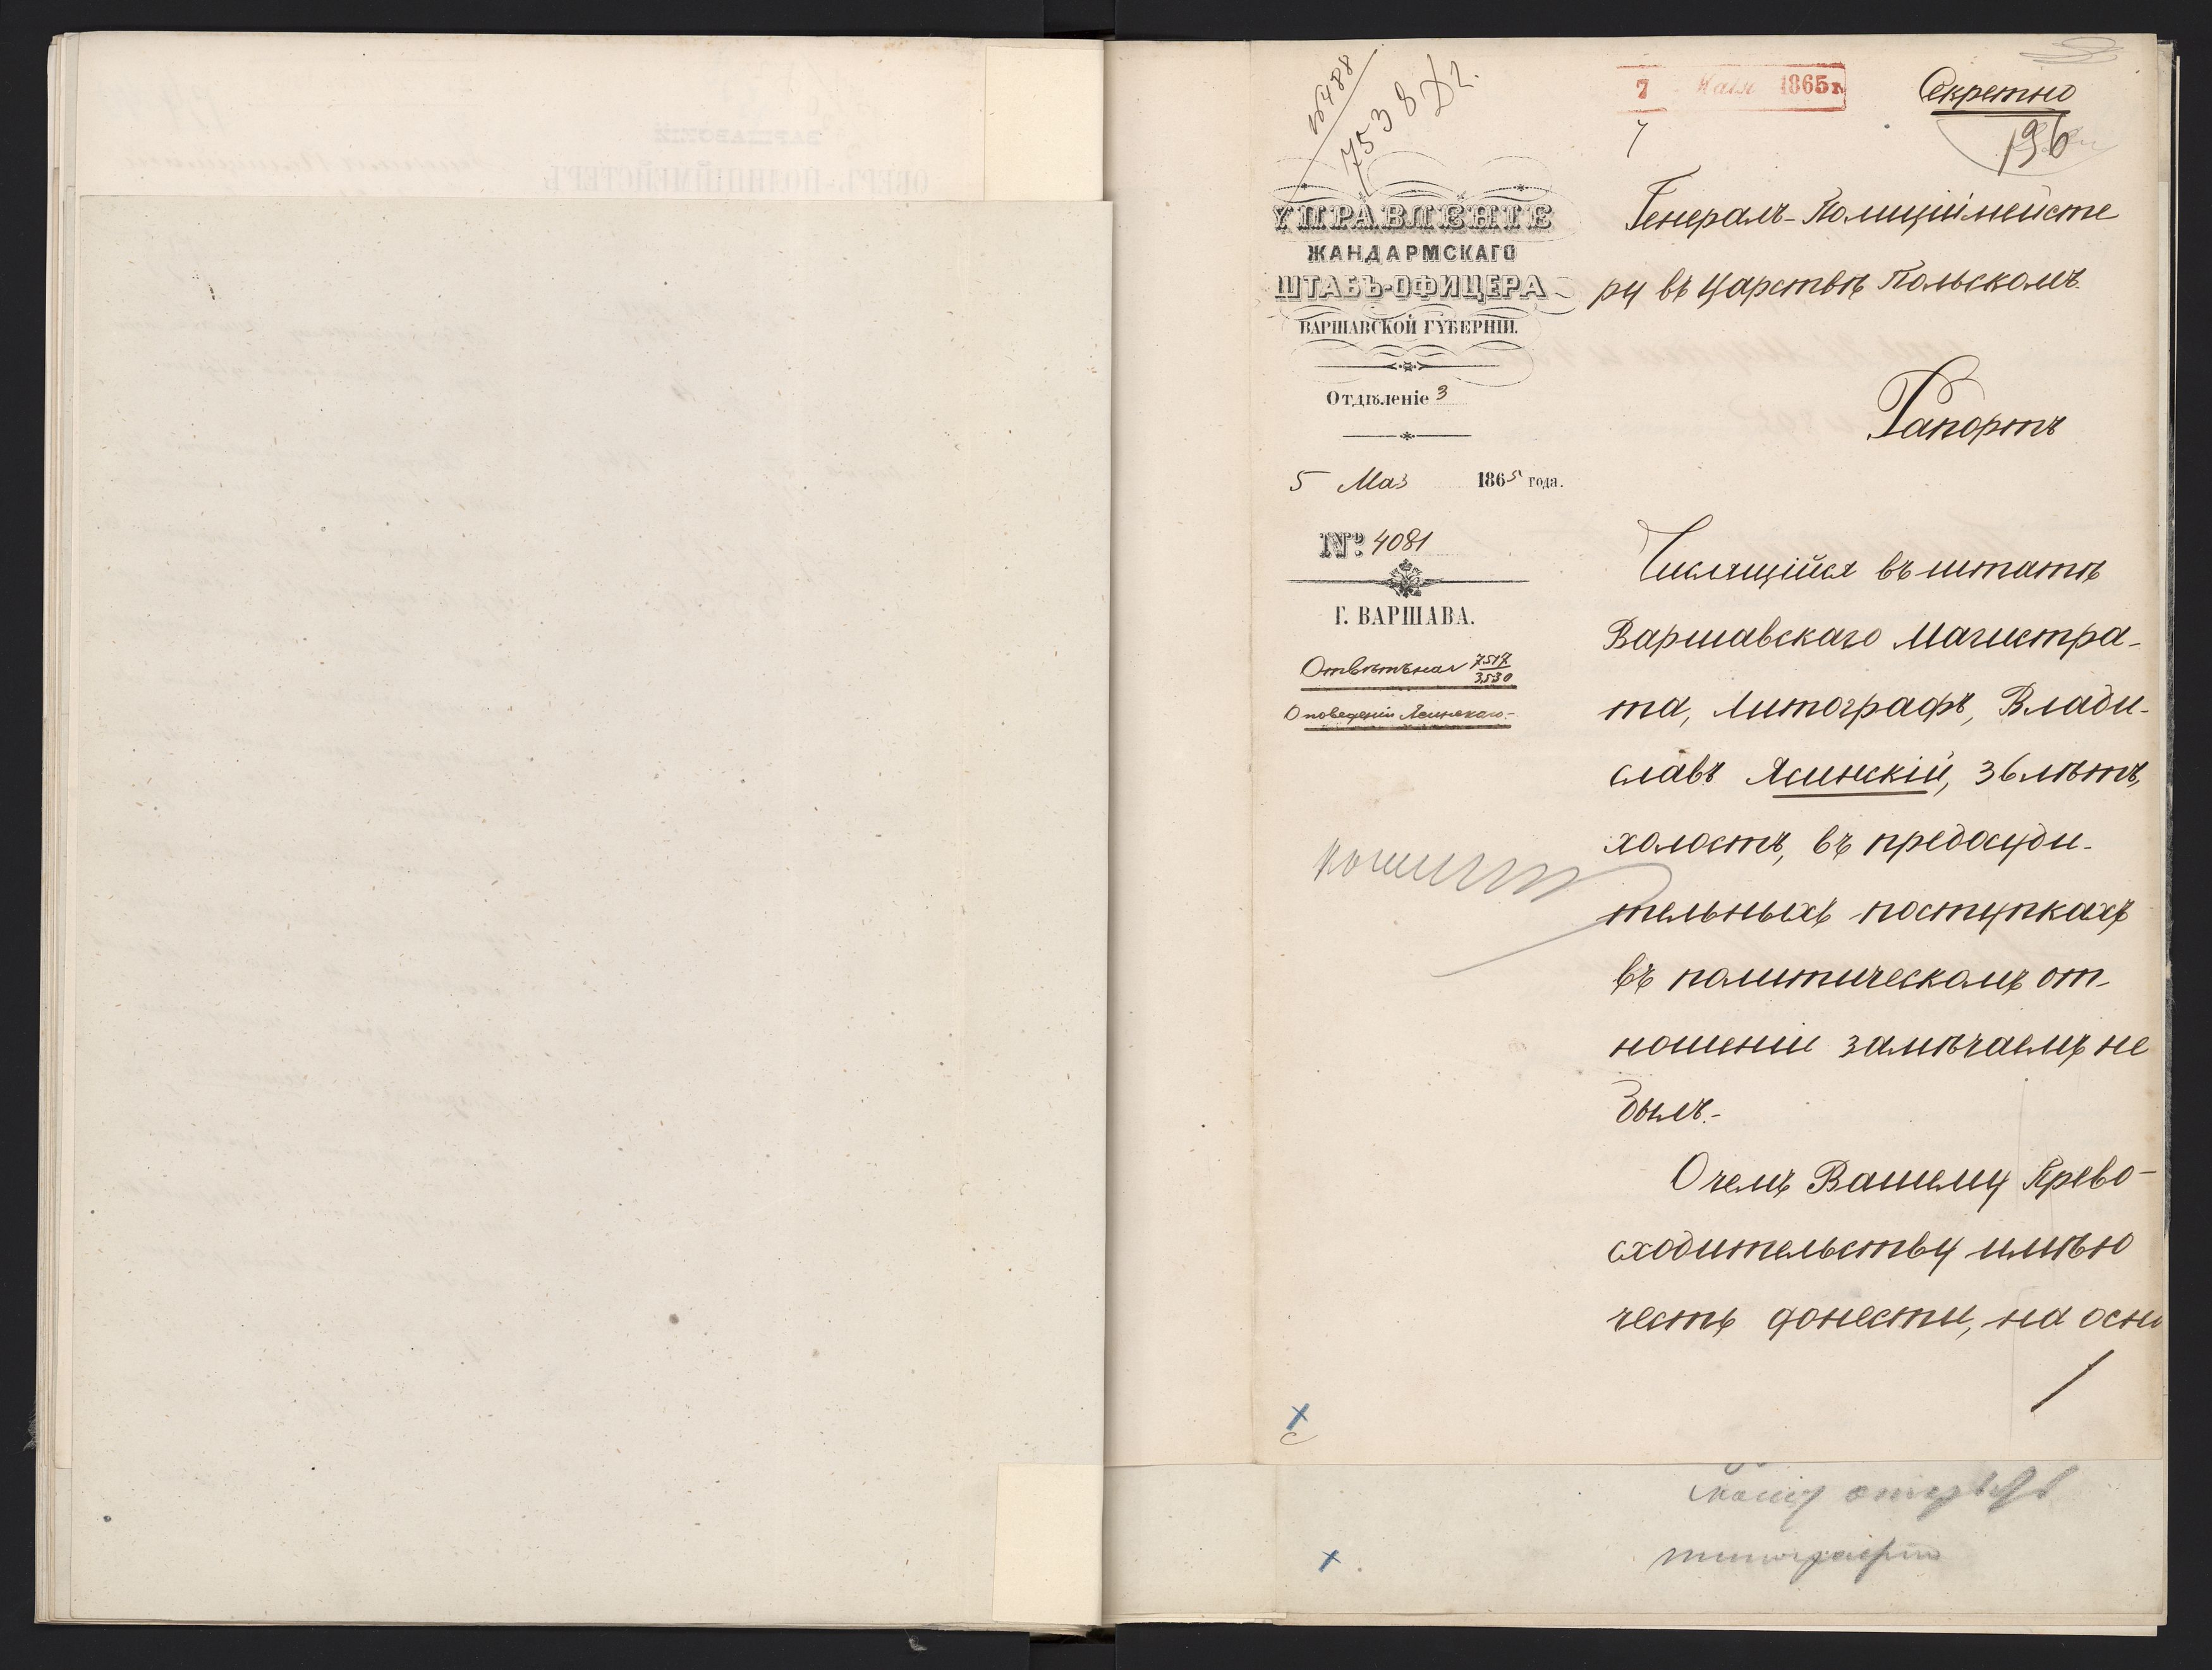 № 488
7538
7 Мая 1865 г.
Секретно
196
УПРАВЛЕНІЕ
ЖАНДАРМСКАГО
ШТАБЪ-ОФИЦЕРА
ВАРШАВСКОЙ ГУБЕРНІИ.
Отдѣленіе 3
5 Мая 1865 года.
№ 4081
Г. ВАРШАВА.
Отвѣтъ на № 7517
3530
О поведеніи Ясинскаго.-
Генералъ-Полиціймейсте
ру въ Царствѣ Польскомъ.
Рапортъ
Числящійся въ штатѣ
Варшавскаго Магистра-
та, Литографъ, Влади-
славъ Ясинскій, 36 лѣтъ,
холостъ, въ предосуди-
тельныхъ поступкахъ
въ политическомъ от-
ношеніи замѣчаемъ не
былъ.-
О чемъ Вашему Прево-
сходительству имѣю
честь донести, на осно